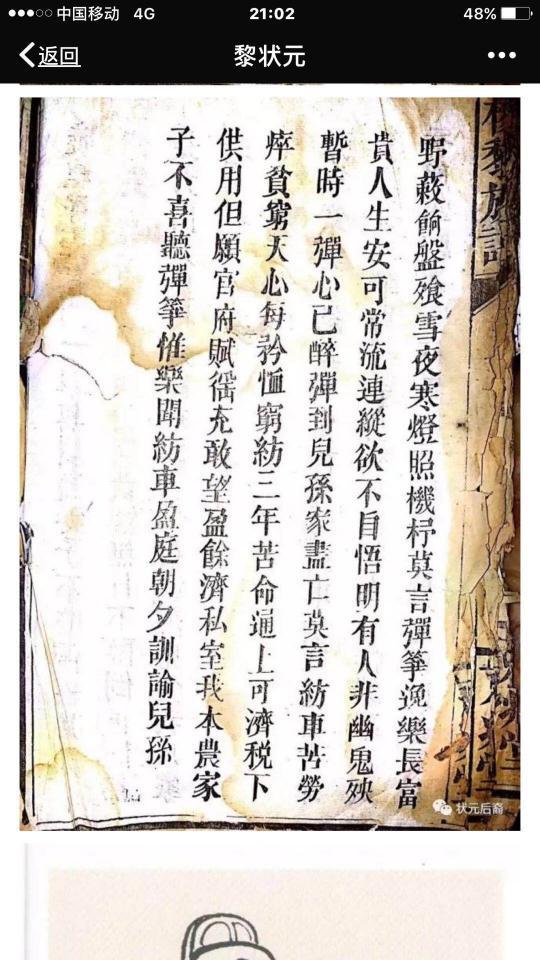 中国移动 4G 21:02 48%
返回
黎状元
野蔌餉盤飱雪夜寒燈照機杼莫言彈箏逸樂長富
貴人生安可常流連縱欲不自悟明有人非幽鬼殃
暫時一彈心已醉彈到兒孫家盡亡莫言紡車苦勞
瘁貧窮天心每矜恤窮紡三年苦命通上可濟税下
供用但願官府賦徭充敢望盈餘濟私室我本農家
子不喜聽彈箏惟樂聞紡車盈庭朝夕訓諭兒孫
状元后裔